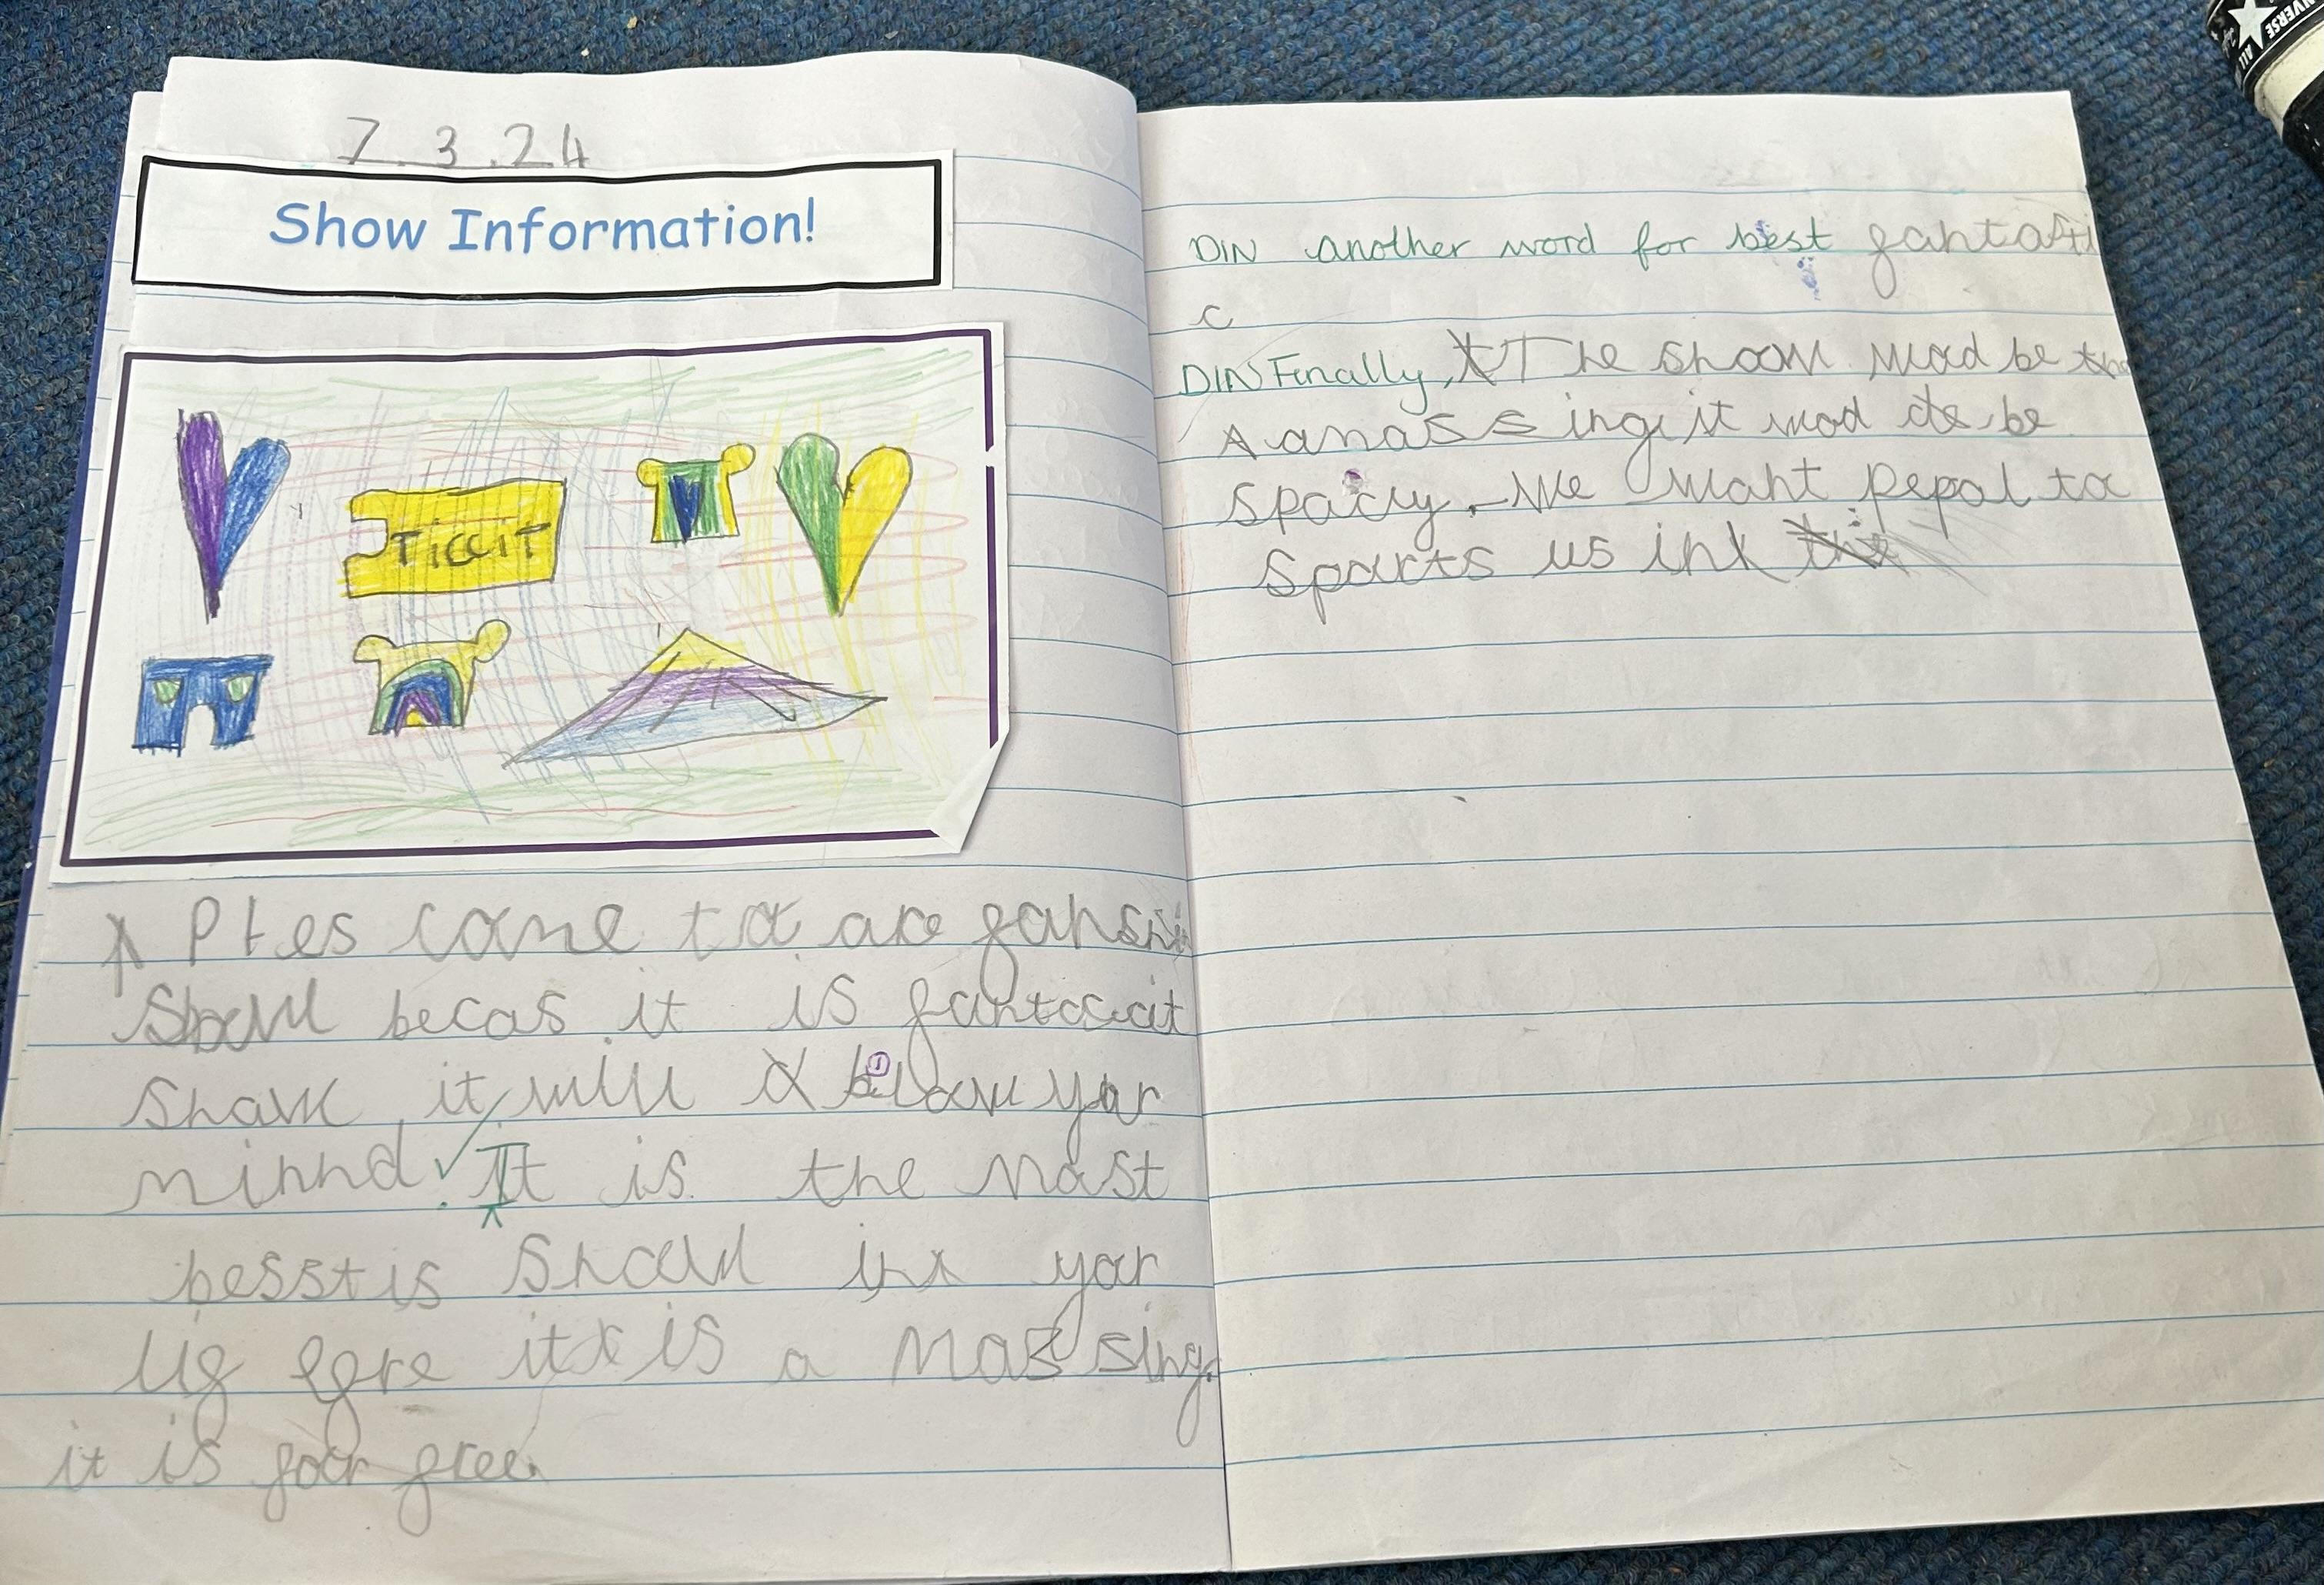 7.3.24
Show Information!
TiccIT
Ples come to are fansni
Show becas it is fantascit
Show it will blow yor
minnd. It is the Most
besst is Show in yor
lig egre it is a Massing.
it is for free.
DIN another word for best fantasti
c
DIN Finally, The show wod be the
A amassing it wod be
spaciy. We want pepol to
sports us in
CONVERSE
ALL